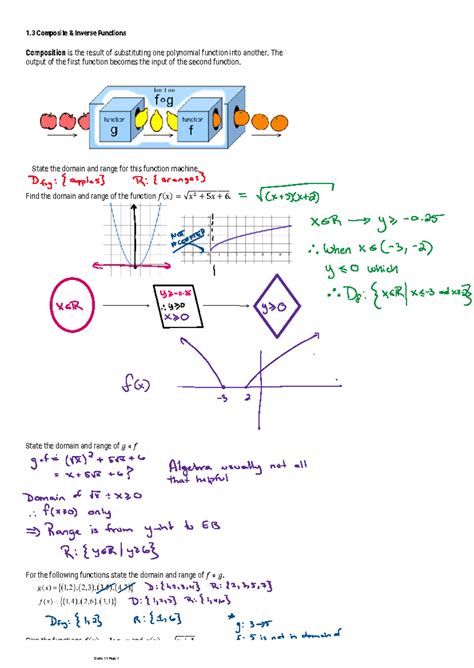 1.3 Composite & Inverse Functions
Composition is the result of substituting one polynomial function into another. The
output of the first function becomes the input of the second function.
function
f∘g
function
g
function
f
State the domain and range for this function machine.
D_f∘g: {apples} R: {oranges}
Find the domain and range of the function f(x) = √x² + 5x + 6. = √(x+3)(x+2)
NOT
ACCEPTED
x∈R → y ≥ -0.25
∴ When x ∈ (-3, -2)
y ≤ 0 which
∴ D_f: {x∈R | x ≤ -3 and x≥-2}
x∈R
y≥-0.25
∴ y≥0
x≥0
y≥0
f(x)
-3 2
State the domain and range of g ∘ f
g∘f = (√x)² + 5√x + 6
= x + 5√x + 6?
Algebra usually not all
that helpful
Domain of √x ÷ x≥0
∴ f(x≥0) only
⇒ Range is from y-int to EB
R: {y∈R | y≥6}
For the following functions state the domain and range of f ∘ g.
g(x) = {(1,2),(2,3),(3,5),(4,7)} D: {1,2,3,4} R: {2,3,5,7}
f(x) = {(1,4),(2,6),(3,1)} D: {1,2,3} R: {1,4,6}
D_f∘g: {1,2} R: {1,6}
* g: 3→5
5 is not in domain of